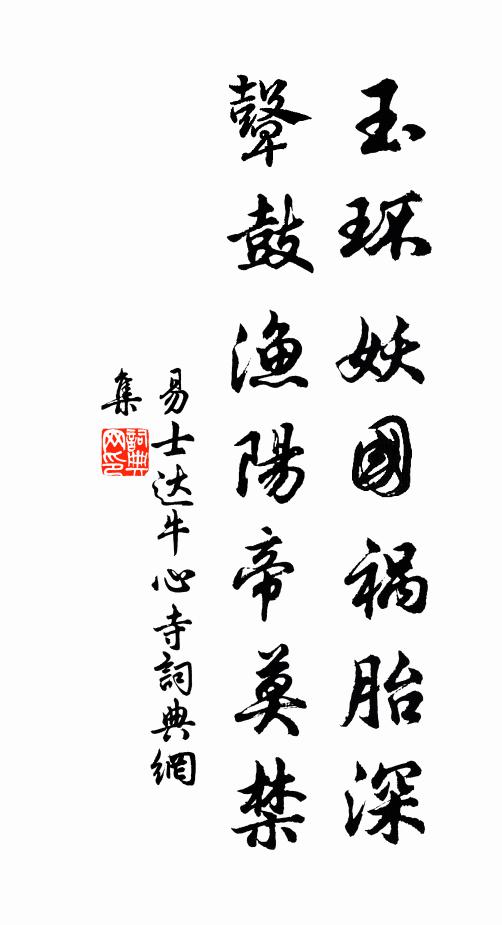 玉环妖國祸胎深
鼙鼓渔陽帝莫禁
易士达牛心寺詞典網
集
詞典
网印